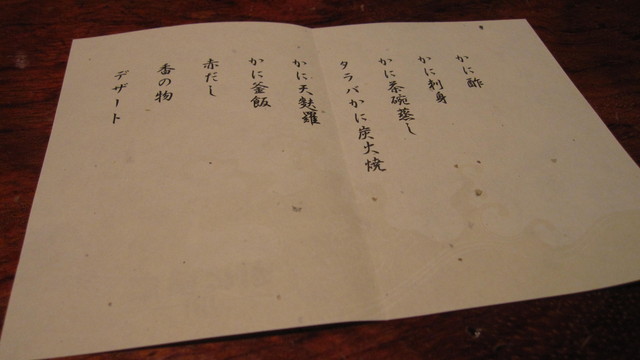 かに酢
かに刺身
かに茶碗蒸し
タラバかに炭火焼
かに天麩羅
かに釜飯
赤だし
香の物
デザート